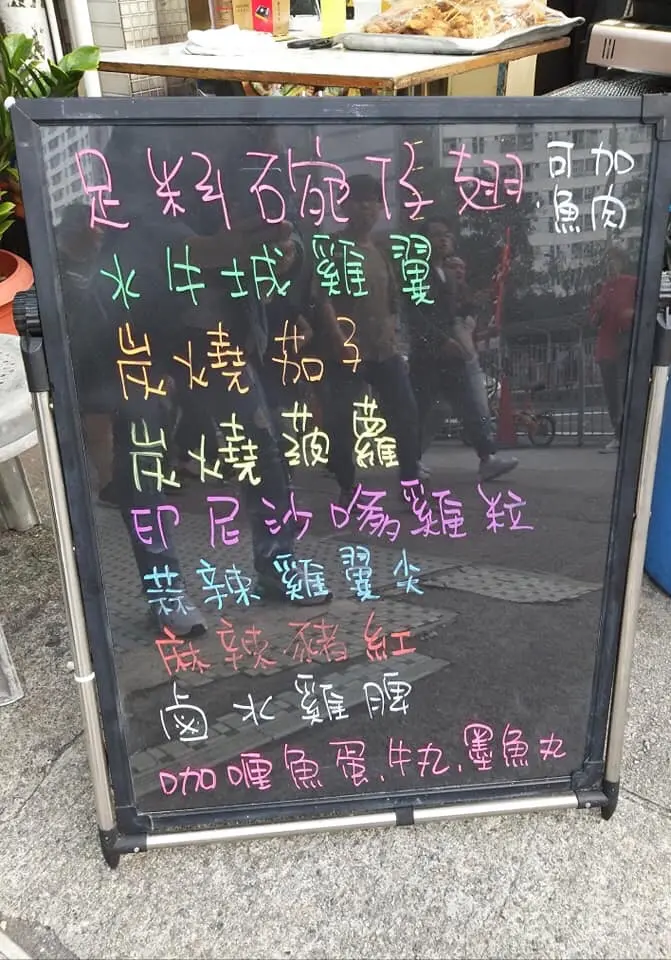 足料碗仔翅 可加魚肉
水牛城雞翼
炭燒茄子
炭燒菠蘿
印尼沙嗲雞粒
蒜辣雞翼尖
麻辣豬紅
鹵水雞脾
咖喱魚蛋,牛丸,墨魚丸